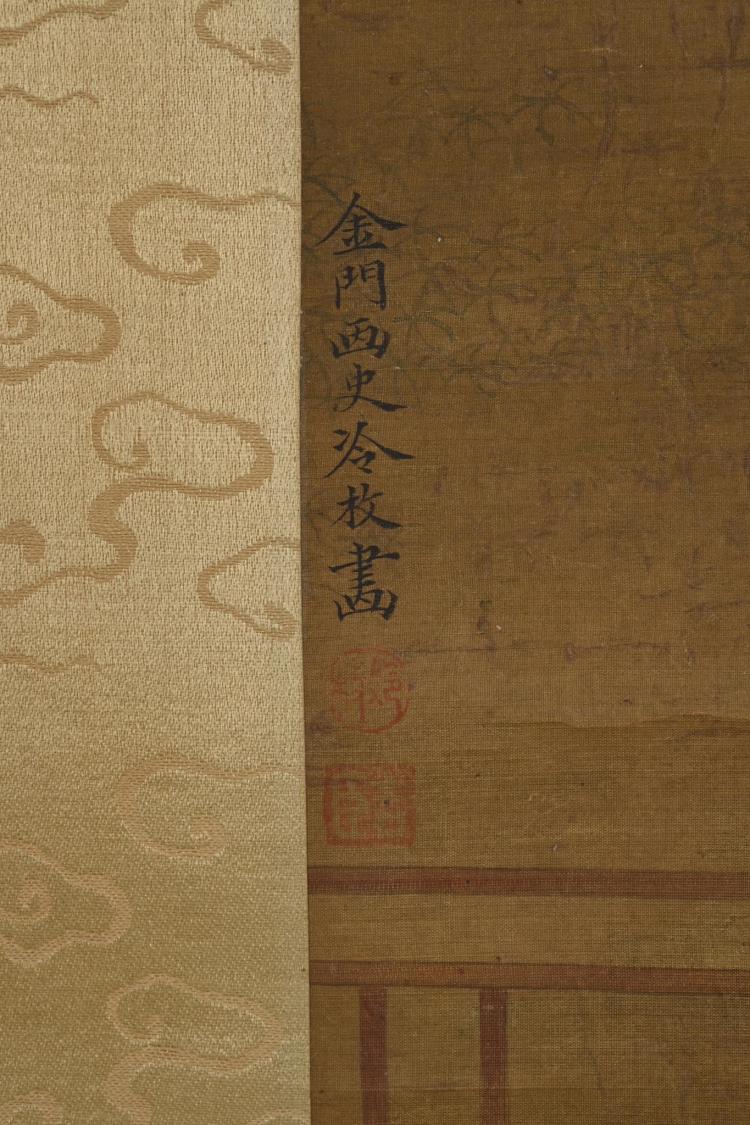 金門画史冷枚畫